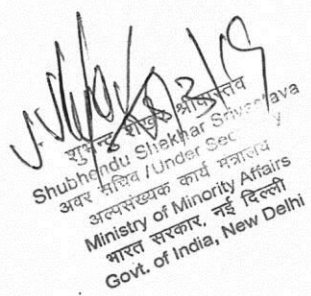 शेखर श्रीवास्तव
Shubhendu Shekhar Srivastava
अवर सचिव / Under Sec
अल्पसंख्यक कार्य मंत्रालय
Ministry of Minority Affairs
भारत सरकार, नई दिल्ली
Govt. of India, New Delhi